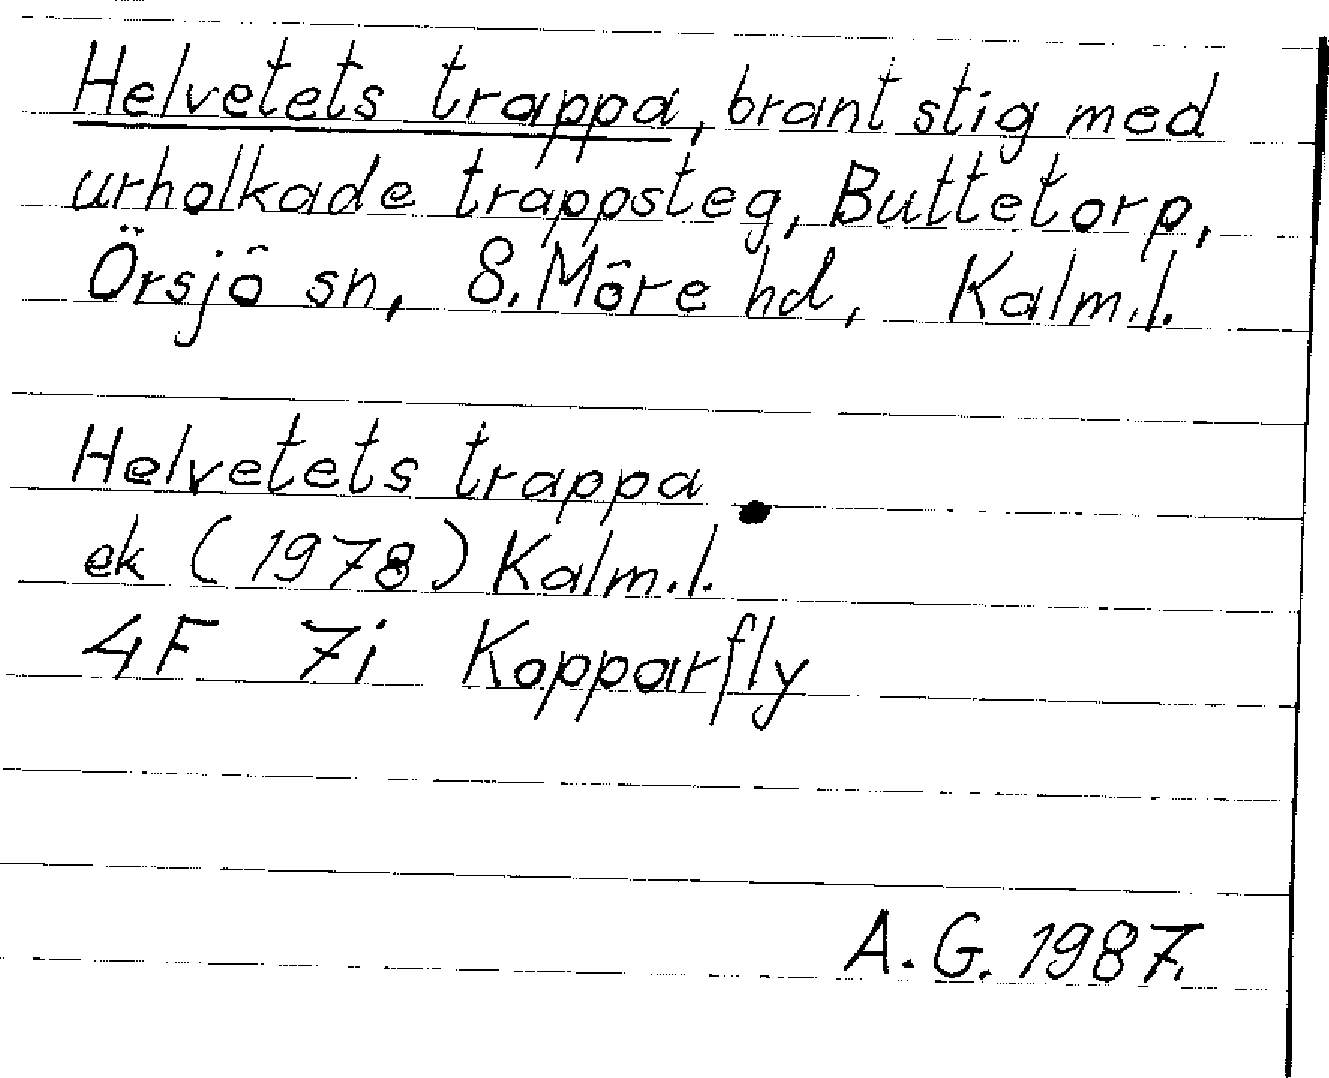 Helvetets trappa, brant stig med
urholkade trappsteg, Buttetorp,
Örsjö sn, S. Möre hd, Kalm.l.
Helvetets trappa
ek (1978) Kalm.l.
4F 7i Kopparfly
A.G. 1987.